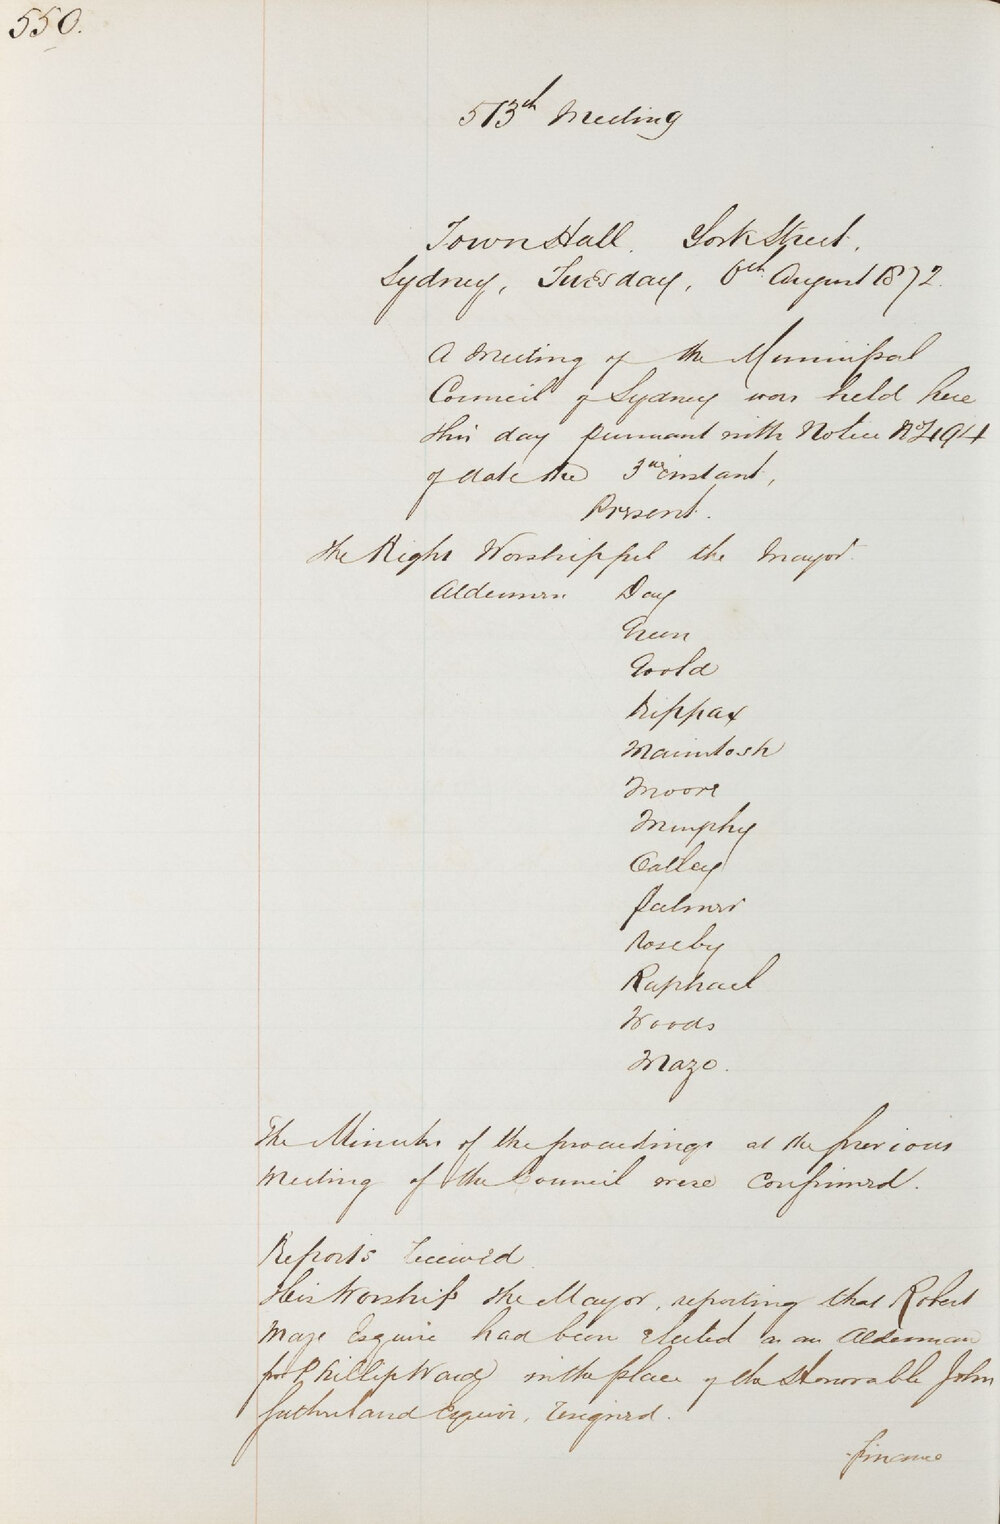 550.
513th Meeting
Town Hall. York Street.
Sydney, Tuesday, 6th August 1872.
A Meeting of the Municipal
Council of Sydney was held here
this day pursuant with Notice No 494
of date the 3rd instant,
Present.
The Right Worshipful the Mayor
Aldermen Day
Green
Goold
Kippax
Macintosh
Moore
Murphy
Oatley
Palmer
Roseby
Raphael
Woods
Maze.
The Minutes of the proceedings at the previous
Meeting of the Council were Confirmed.
Reports received
His Worship the Mayor, reporting that Robert
Maze Esquire had been elected as an Alderman
for Phillip Ward in the place of the Honorable John
Sutherland Esquire, resigned.
Finance